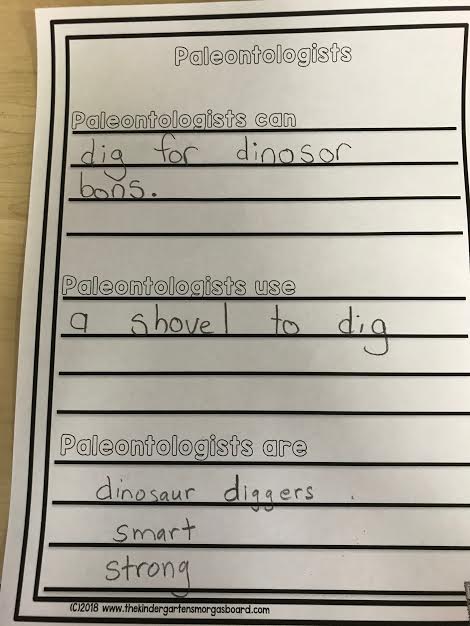 Paleontologists
Paleontologists can
dig for dinosor
bons.
Paleontologists use
a shovel to dig
Paleontologists are
dinosaur diggers .
smart
strong
(C)2018 www.thekindergartensmorgasboard.com